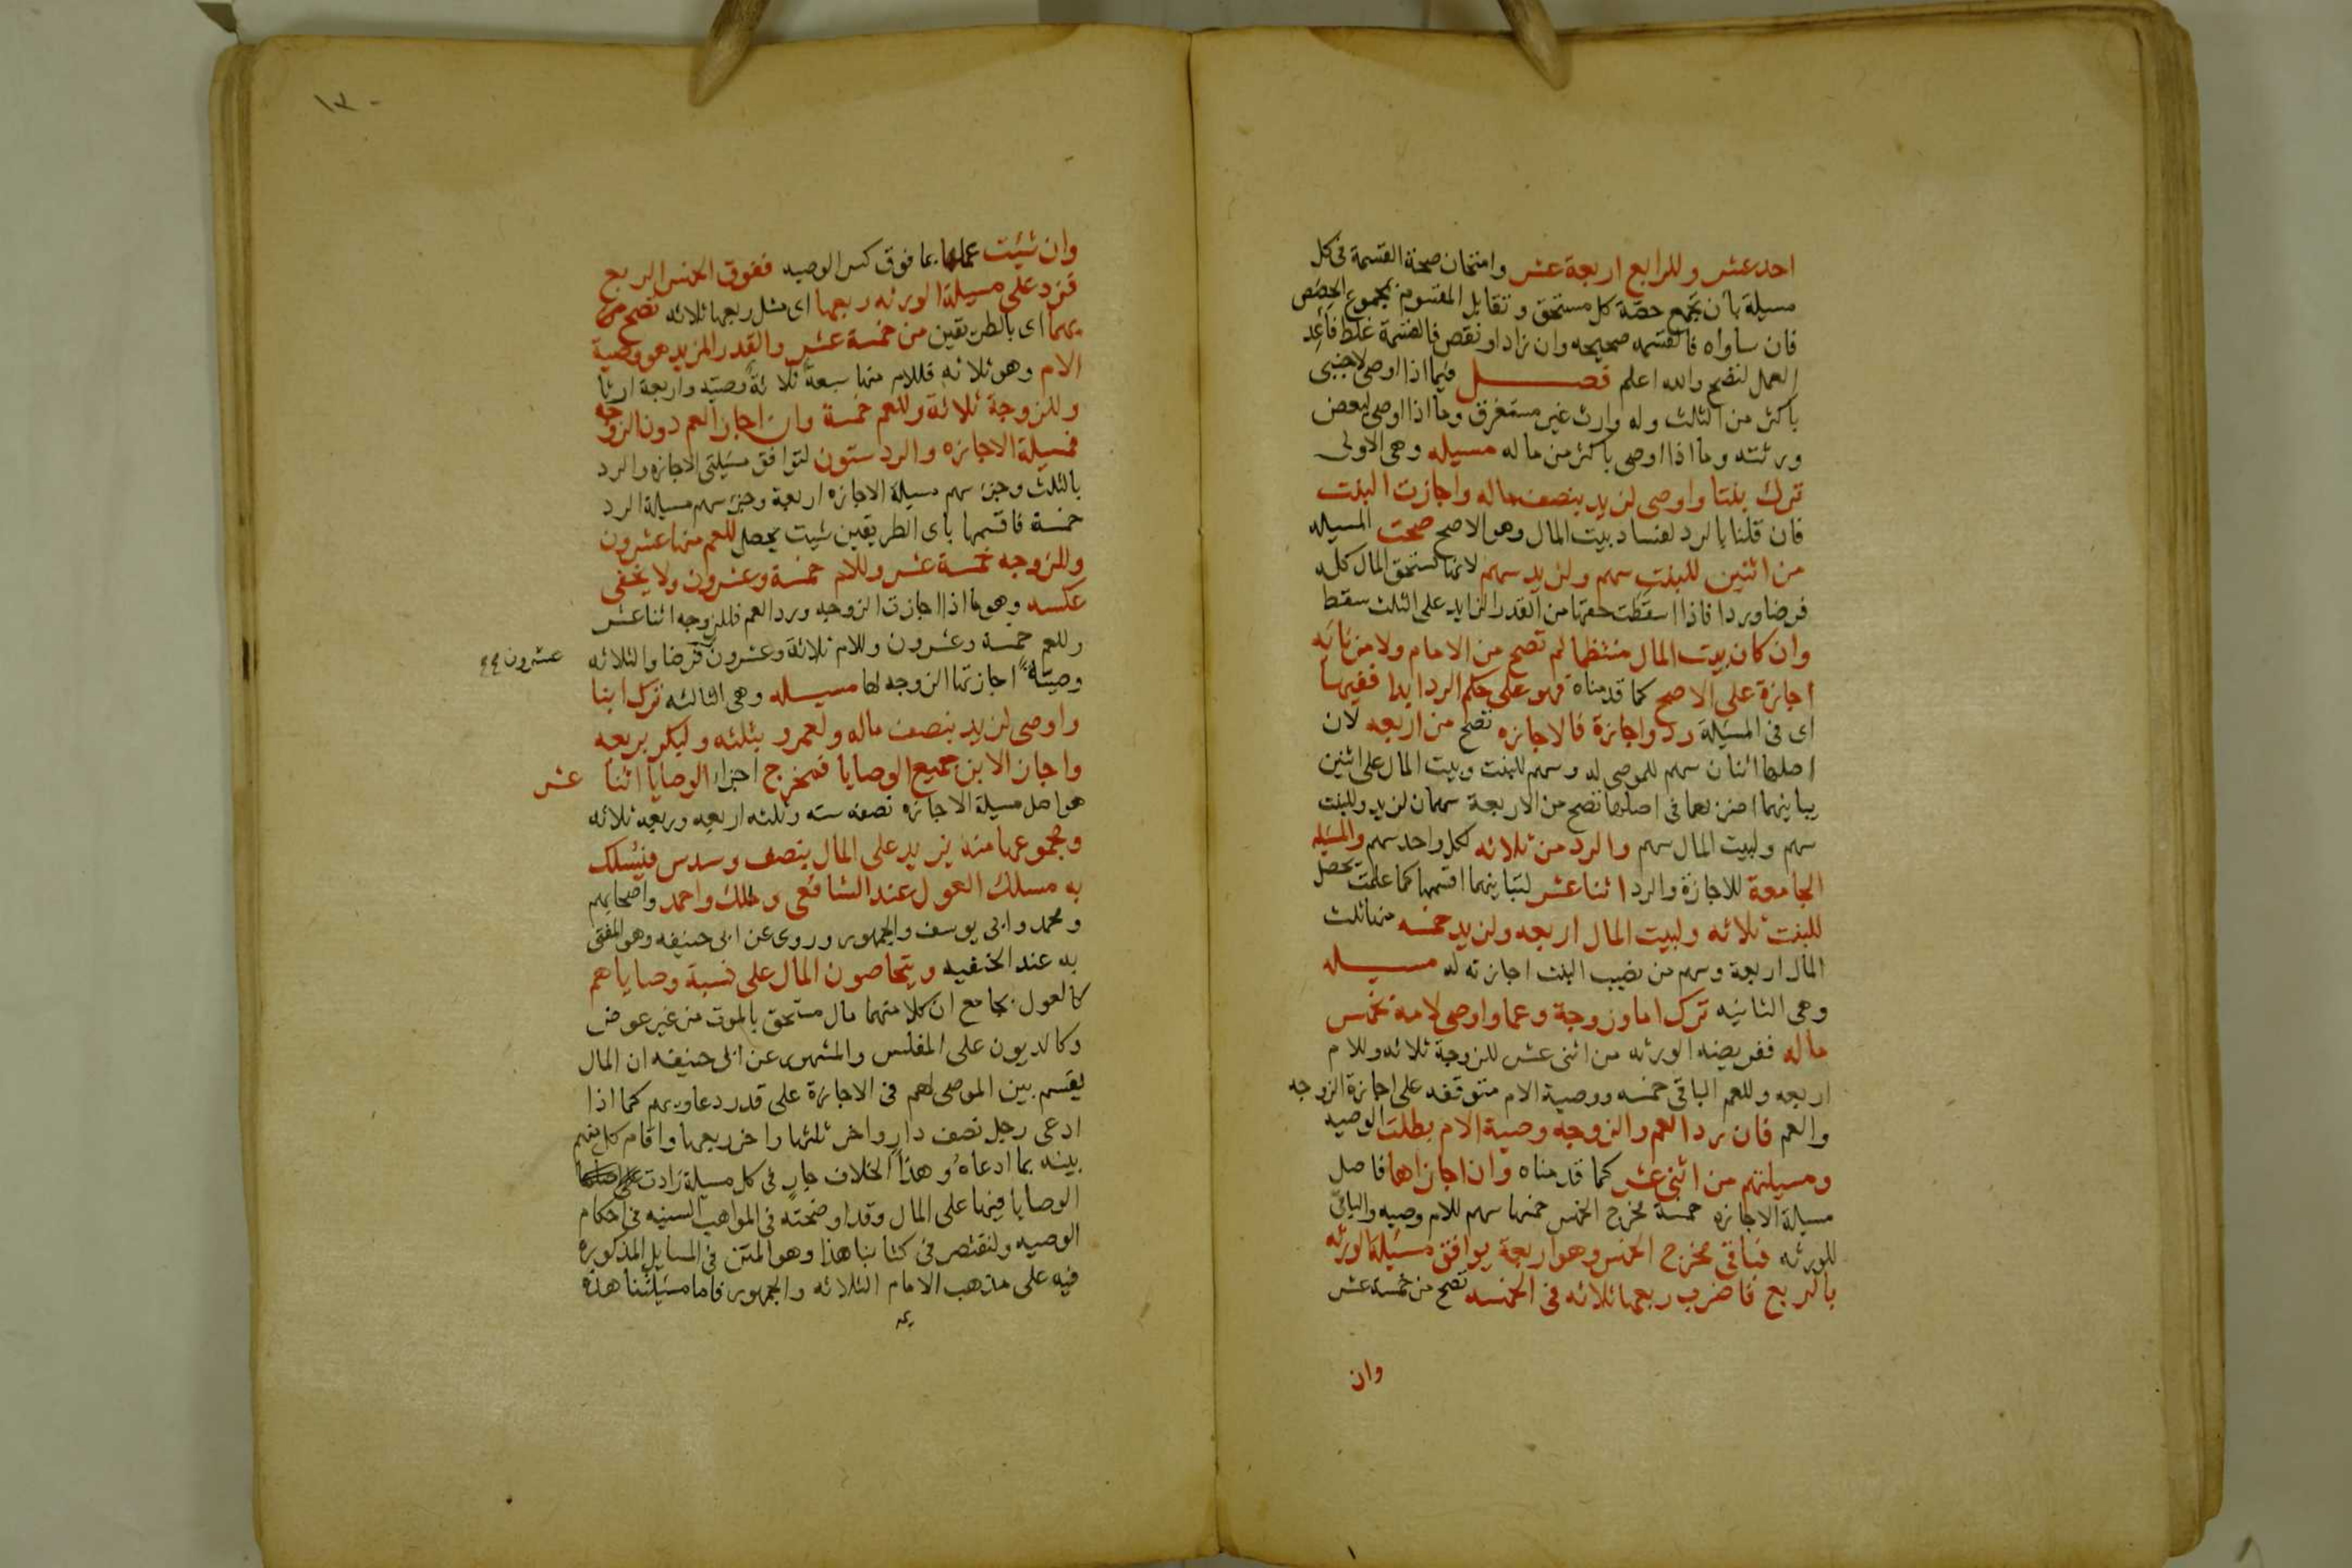 احد عشر وللرابع اربعة عشر وامتحان صحة القسمة فى كل
مسيلة بأن تجمع حصة كل مستحق وتقابل المقسوم بمجموع الحصص
فان ساواه فالقسمه صحيحه وان زاد او نقص فالقسمة غلط فأعد
العمل لتصح والله اعلم فصل فيما اذا اوصى لاجنبى
باكثر من الثلث وله وارث غير مستغرق وما اذا اوصى لبعض
ورثته وما اذا اوصى باكثر من ماله مسيله وهى الاولى
ترك بنتا واوصى لزيد بنصف ماله واجازت البنت
فان قلنا بالرد لفساد بيت المال وهو الاصح صحت المسيله
من اثنين للبنت سهم ولزيد سهم لانها تستحق المال كله
فرضا وردا فاذا اسقطت حقها من القدر الزايد على الثلث سقط
وان كان بيت المال منتظما لم تصح من الامام ولا من نائبه
اجازة على الاصح كما قدمناه فهو على حكم الرد ابدا ففيها
اى فى المسيلة رد واجازة فالاجازه تصح من اربعه لان
اصلها اثنان سهم للموصى له وسهم للبنت وبيت المال على اثنين
يباينهما اضربهما فى اصلها تصح من الاربعة سهمان لزيد وللبنت
سهم ولبيت المال سهم والرد من ثلاثه لكل واحد سهم والمسيله
الجامعة للاجازة والرد اثنا عشر لتباينهما اقسمها كما علمت يحصل
للبنت ثلاثه ولبيت المال اربعه ولزيد خمسه منها ثلث
المال اربعة وسهم من نصيب البنت اجازته له مسيله
وهى الثانيه ترك اما وزوجة وعما واوصى لامه بخمس
ماله ففريضه الورثه من اثنى عشر للزوجة ثلاثه وللام
اربعه وللعم الباقى خمسه ووصية الام متوقفه على اجازة الزوجه
والعم فان رد العم والزوجه وصية الام بطلت الوصيه
ومسيلتهم من اثنى عشر كما قدمناه وان اجازاها فاصل
مسيلة الاجازه خمسة مخرج الخمس خمسها سهم للام وصيه والباقى
للورثه فباقى مخرج الخمس وهو اربعة يوافق مسيلة الورثه
بالربع فاضرب ربعها ثلاثه فى الخمسه تصح من خمسة عشر
وان
١٣٠
وان شيت عملها بما فوق كسر الوصيه ففوق الخمس الربع
فزد على مسيلة الورثه ربعها اى مثل ربعها ثلاثه تصح من
بهما اى بالطريقين من خمسة عشر والقدر المزيد هو وصية
الام وهو ثلاثه فللام منها سبعة ثلاثة وصيه واربعة ارثا
وللزوجة ثلاثة وللعم خمسة وان اجاز العم دون الزوجه
فمسيلة الاجازه والرد ستون لتوافق مسيلتى الاجازه والرد
بالثلث وجزء سهم مسيلة الاجازه اربعة وجزء سهم مسيلة الرد
خمسة فاقسمها باى الطريقين شيت يحصل للعم منها عشرون
وللزوجه خمسة عشر وللام خمسة وعشرون ولا يخفى
عكسه وهو ما اذا اجازت الزوجه ورد العم فللزوجه اثنا عشر
وللعم خمسة وعشرون وللام ثلاثة وعشرون فرضا والثلاثه
عشرون
وصيتة اجازتها الزوجه لها مسيله وهى الثالثه ترك ابنا
واوصى لزيد بنصف ماله ولعمرو بثلثه ولبكر بربعه
واجاز الابن جميع الوصايا فمخرج اجزاء الوصايا اثنا عشر
هو اصل مسيلة الاجازه نصفه سته وثلثه اربعه وربعه ثلاثه
ومجموعها منه يزيد على المال بنصف وسدس فيسلك
به مسلك العول عند الشافعى ومالك واحمد واصحابهم
ومحمد وابى يوسف والجمهور وروى عن ابى حنيفه وهو المفتى
به عند الحنفيه ويتحاصون المال على نسبة وصاياهم
كالعول بجامع ان كلا منهما مال مستحق بالموت من غير عوض
وكالديون على المفلس والمشهور عن ابى حنيفه ان المال
يقسم بين الموصى لهم فى الاجازة على قدر دعاويهم كما اذا
ادعى رجل نصف دار واخر ثلثها واخر ربعها واقام كل منهم
بينه بما ادعاه وهذا الخلاف جار فى كل مسيلة زادت
الوصايا فيها على المال وقد اوضحته فى المواهب السنيه فى احكام
الوصيه ولنقتصر فى كتابنا هذا وهو المتن فى المسايل المذكوره
فيه على مذهب الامام الثلاثه والجمهور فاما مسيلتنا هذه